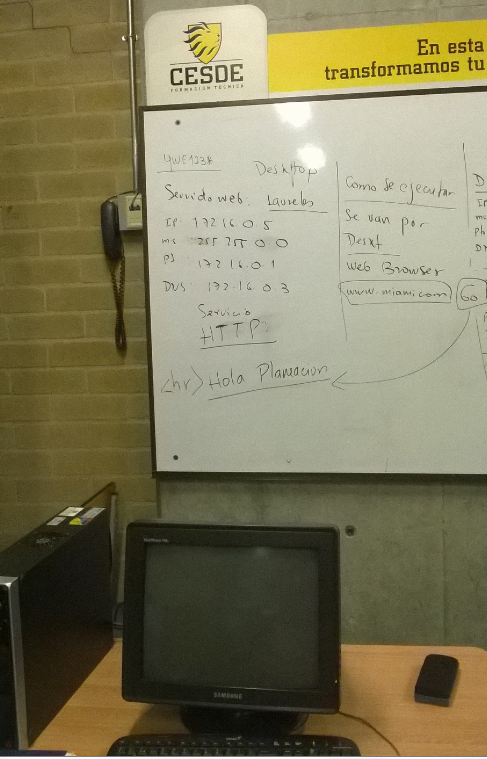 CESDE
FORMACIÓN TÉCNICA
En esta
transformamos tu
Desktop
Servidor web: Laureles
IP: 172.16.0.5
255.255.0.0
172.16.0.1
DNS: 172.16.0.3
Servicio
HTTP
<hr> Hola Planeacion
Como se ejecutar
Se van por
Desxt
web Browser
www.miami.com Go
D
SAMSUNG